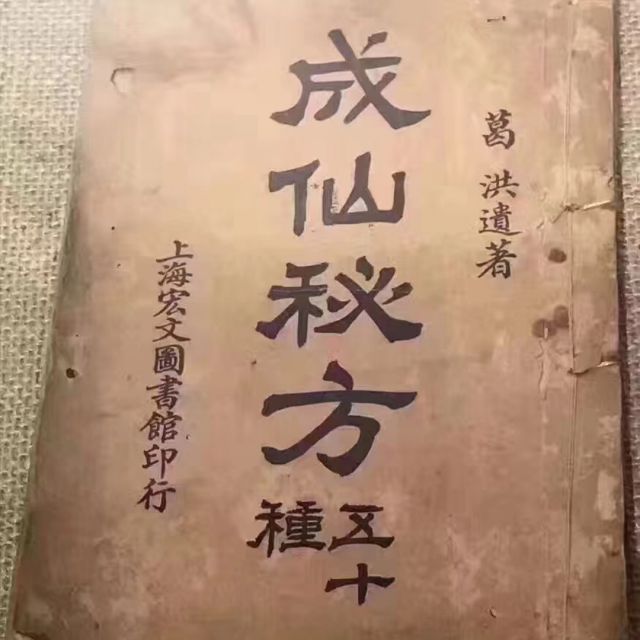 葛洪遺著
成仙秘方
五十種
上海宏文圖書館印行